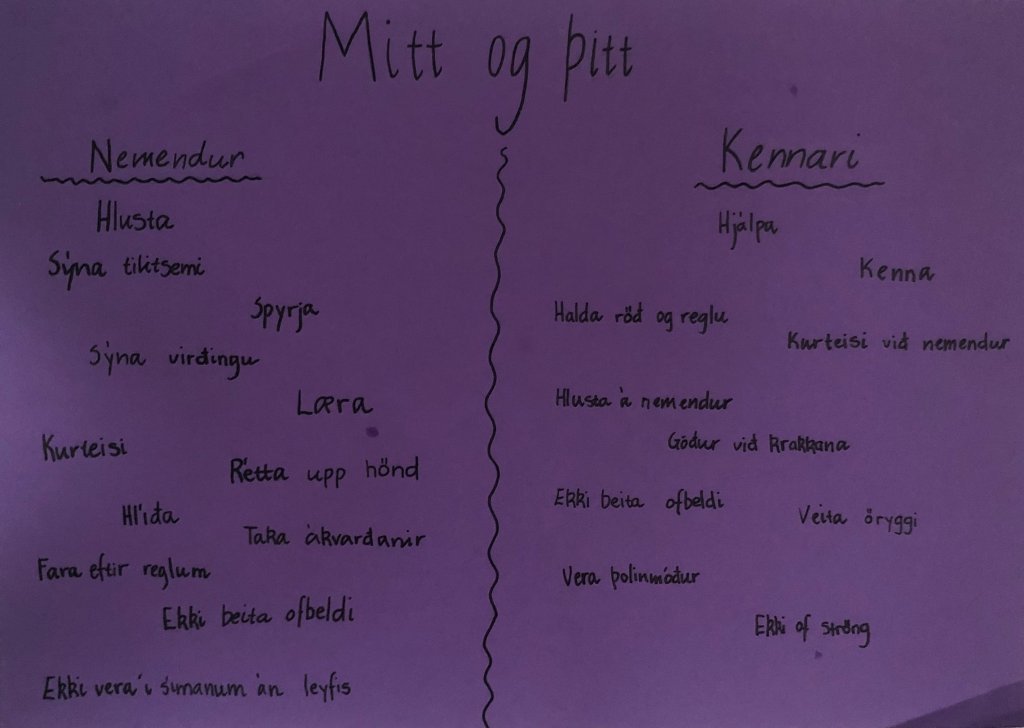 Mitt og þitt
Nemendur
Hlusta
Sýna tilitsemi
Spyrja
Sýna virðingu
Læra
Kurteisi
Rétta upp hönd
Hlíða
Taka ákvarðanir
Fara eftir reglum
Ekki beita ofbeldi
Ekki vera í símanum án leyfis
Kennari
Hjálpa
Kenna
Halda röð og reglu
Kurteisi við nemendur
Hlusta á nemendur
Góður við krakkana
Ekki beita ofbeldi
Veita öryggi
Vera þolinmóður
Ekki of ströng